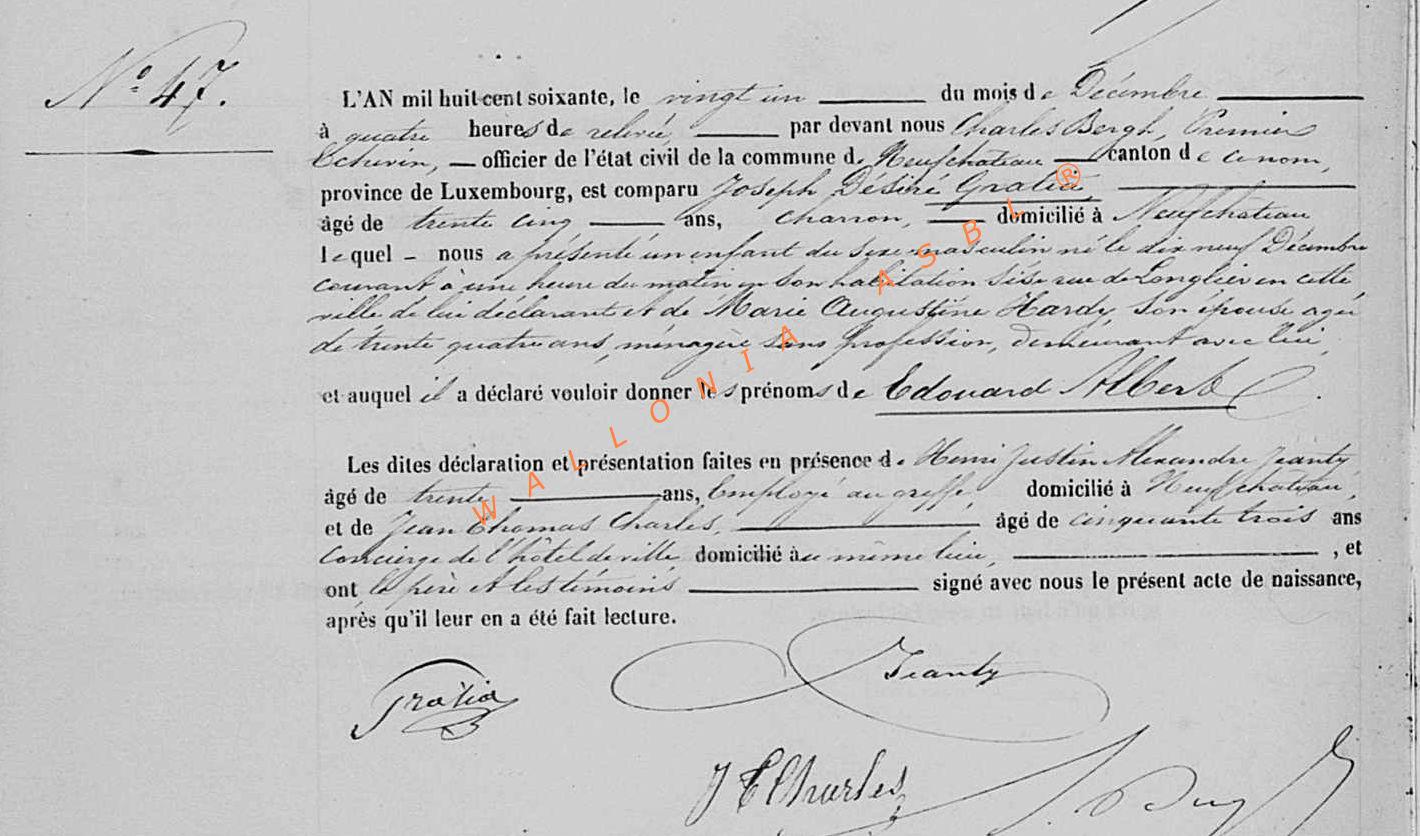 N° 47.
L'AN mil huit cent soixante, le vingt un du mois de Décembre
à quatre heures de relevée, par devant nous Charles Bergh, Premier
Echevin, officier de l'état civil de la commune de Neufchateau canton de ce nom,
province de Luxembourg, est comparu Joseph Désiré Gratia
âgé de trente cinq ans, charron, domicilié à Neufchateau
lequel nous a présenté un enfant du sexe masculin né le dix neuf Décembre
courant à une heure du matin en son habitation sise rue de Longlier en cette
ville de lui déclarant et de Marie Augustine Hardy, son épouse agée
de trente quatre ans, ménagère sans profession, demeurant avec lui,
et auquel il a déclaré vouloir donner les prénoms de Edouard Albert.
Les dites déclaration et présentation faites en présence de Henri Justin Alexandre Jeanty
âgé de trente ans, Employé au greffe, domicilié à Neufchateau,
et de Jean Thomas Charles, âgé de cinquante trois ans
Concierge de l'hôtel de ville, domicilié au même lieu, , et
ont le père et les témoins signé avec nous le présent acte de naissance,
après qu'il leur en a été fait lecture.
Gratia Jeanty
J T Charles
WALLONIA ASBL ®